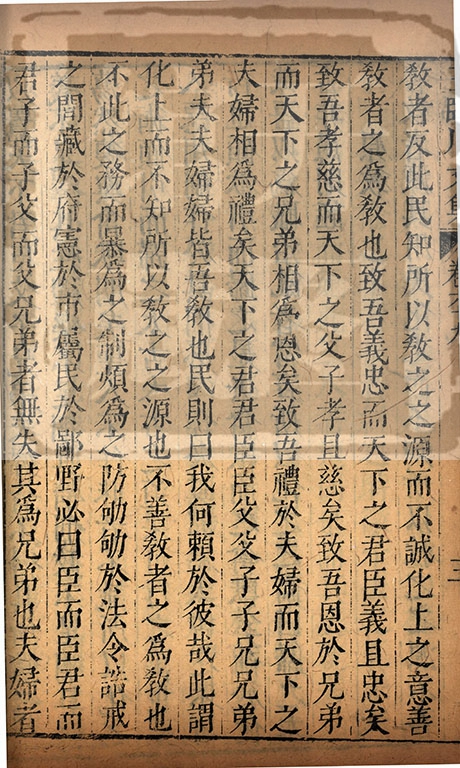 敎者反此民知所以敎之之源而不誠化上之意善
敎者之爲敎也致吾義忠而天下之君臣義且忠矣
致吾孝慈而天下之父子孝且慈矣致吾恩於兄弟
而天下之兄弟相爲恩矣致吾禮於夫婦而天下之
夫婦相爲禮矣天下之君君臣臣父父子子兄兄弟
弟夫夫婦婦皆吾敎也民則曰我何賴於彼哉此謂
化上而不知所以敎之之源也不善敎者之爲敎也
不此之務而暴爲之制煩爲之防劬劬於法令誥戒
之間藏於府憲於市屬民於鄙野必曰臣而臣君而
君子而子父而父兄弟者無失其爲兄弟也夫婦者